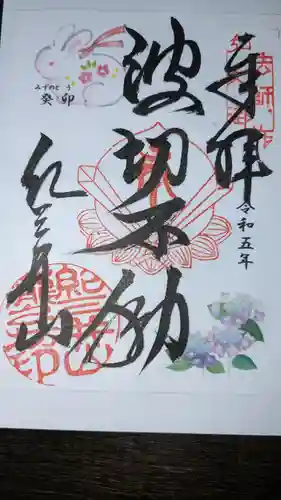 奉拝
令和五年
波切不動
みずのとう
癸卯
紀三井山